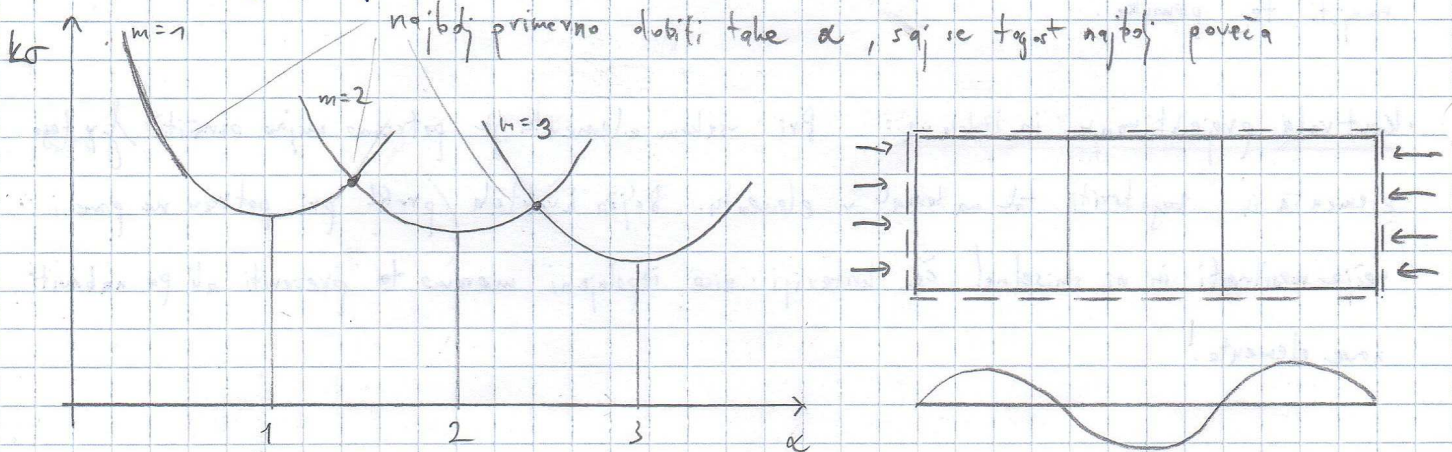 najbolj primerno dobiti take α, saj se togost najbolj poveča
kσ
m=1
m=2
m=3
1
2
3
α